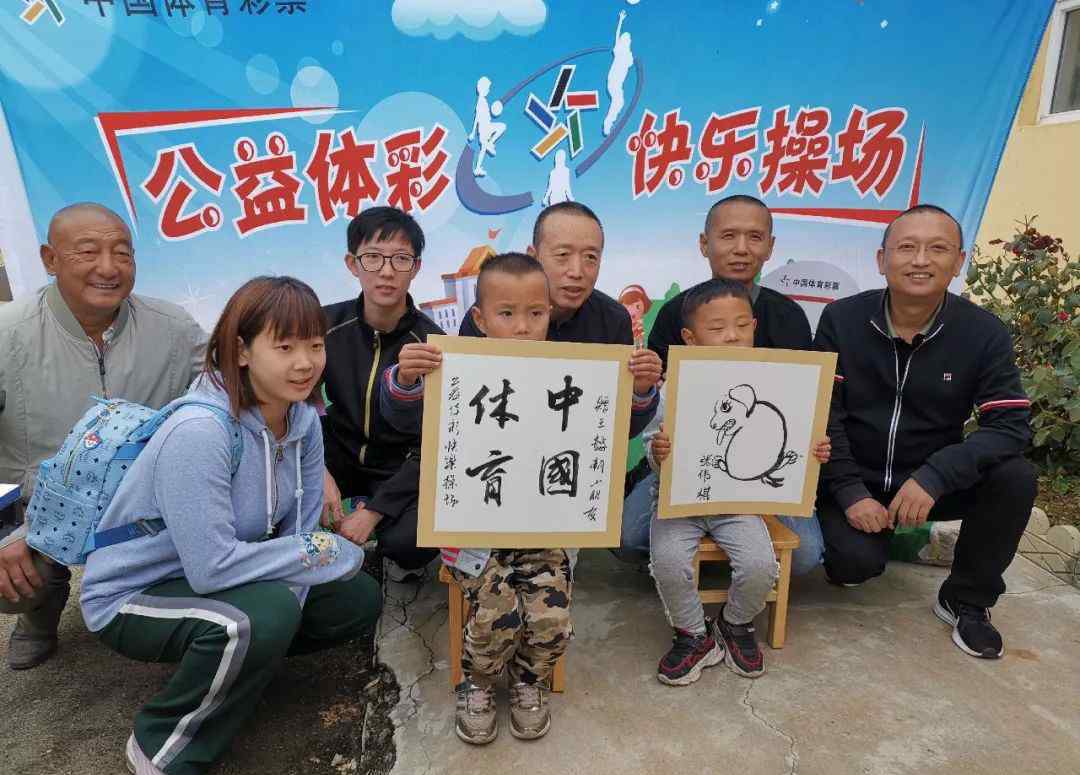 中国体育彩票
公益体彩 快乐操场
中国体育彩票
赠王 小朋友
中國
体育
公益体彩快樂操场